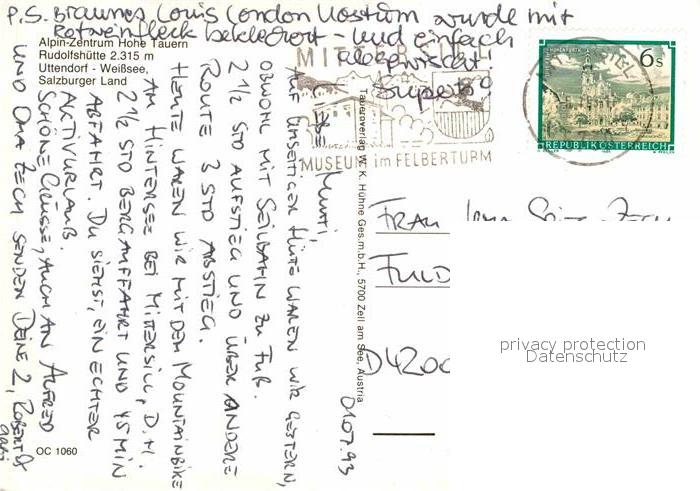 P.S. Braunes Louis London Kostüm wurde mit
Rotweinfleck bekleckert - und einfach
abgewischt!
Super!
Alpin-Zentrum Hohe Tauern
Rudolfshütte 2.315 m
Uttendorf - Weißsee,
Salzburger Land
MITTERSILL
MUSEUM im FELBERTURM
6s
REPUBLIK ÖSTERREICH
01.07.93
Mutti,
AUF UMSEITIGER HÜTTE WAREN WIR GESTERN,
OBWOHL MIT SEILBAHN ZU FUß.
2 1/2 STD AUFSTIEG UND ÜBER ANDERE
ROUTE 3 STD ABSTIEG.
HEUTE WAREN WIR MIT DEM MOUNTAINBIKE
AM HINTERSEE BEI MITTERSILL, D.H.
2 1/2 STD BERGAUFFAHRT UND 45 MIN
ABFAHRT. DU SIEHST, EIN ECHTER
AKTIVURLAUB.
SCHÖNE GRÜSSE, AUCH AN ALFRED
UND OMA ZECH SENDEN DEINE 2, ROBERT &
Gabi
Tauernverlag W. K. Hühne Ges.m.b.H., 5700 Zell am See, Austria
FRAU
FULD
D 4200
privacy protection
Datenschutz
OC 1060